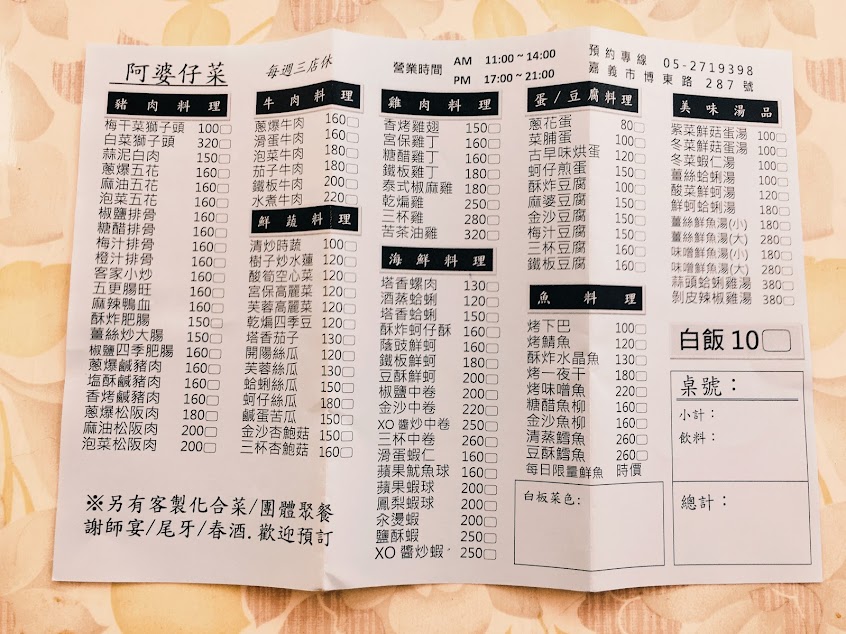 阿婆仔菜
每週三店休
營業時間
AM 11:00 ~ 14:00
PM 17:00 ~ 21:00
預約專線 05-2719398
嘉義市博東路 287 號
豬肉料理
梅干菜獅子頭 100
白菜獅子頭 320
蒜泥白肉 150
蔥爆五花 160
麻油五花 160
泡菜五花 160
椒鹽排骨 160
糖醋排骨 160
梅汁排骨 160
橙汁排骨 160
客家小炒 160
五更腸旺 160
麻辣鴨血 160
酥炸肥腸 150
薑絲炒大腸 150
椒鹽四季肥腸 160
蔥爆鹹豬肉 160
塩酥鹹豬肉 160
香烤鹹豬肉 160
蔥爆松阪肉 180
麻油松阪肉 200
泡菜松阪肉 200
牛肉料理
蔥爆牛肉 160
滑蛋牛肉 160
泡菜牛肉 180
茄子牛肉 180
鐵板牛肉 200
水煮牛肉 220
鮮蔬料理
清炒時蔬 100
樹子炒水蓮 120
酸筍空心菜 120
宮保高麗菜 120
芙蓉高麗菜 120
乾煸四季豆 120
塔香茄子 130
開陽絲瓜 120
芙蓉絲瓜 130
蛤蜊絲瓜 150
蚵仔絲瓜 180
鹹蛋苦瓜 150
金沙杏鮑菇 150
三杯杏鮑菇 160
雞肉料理
香烤雞翅 150
宮保雞丁 160
糖醋雞丁 160
鐵板雞丁 160
泰式椒麻雞 180
乾煸雞 250
三杯雞 280
苦茶油雞 320
海鮮料理
塔香螺肉 130
酒蒸蛤蜊 120
塔香蛤蜊 150
酥炸蚵仔酥 160
蔭豉鮮蚵 160
鐵板鮮蚵 180
豆酥鮮蚵 200
椒鹽中卷 200
金沙中卷 220
XO 醬炒中卷 250
三杯中卷 260
滑蛋蝦仁 160
蘋果魷魚球 160
蘋果蝦球 200
鳳梨蝦球 200
氽燙蝦 200
鹽酥蝦 250
XO 醬炒蝦 250
蛋/豆腐料理
蔥花蛋 80
菜脯蛋 100
古早味烘蛋 120
蚵仔煎蛋 150
酥炸豆腐 120
麻婆豆腐 150
金沙豆腐 150
梅汁豆腐 150
三杯豆腐 160
鐵板豆腐 160
魚料理
烤下巴 100
烤鯖魚 120
酥炸水晶魚 130
烤一夜干 180
烤味噌魚 220
糖醋魚柳 160
金沙魚柳 160
清蒸鱈魚 260
豆酥鱈魚 260
每日限量鮮魚 時價
白板菜色:
美味湯品
紫菜鮮菇蛋湯 100
冬菜鮮菇蛋湯 100
冬菜蝦仁湯 150
薑絲蛤蜊湯 100
酸菜鮮蚵湯 120
鮮蚵蛤蜊湯 180
薑絲鮮魚湯(小) 180
薑絲鮮魚湯(大) 280
味噌鮮魚湯(小) 180
味噌鮮魚湯(大) 280
蒜頭蛤蜊雞湯 380
剝皮辣椒雞湯 380
白飯 10
桌號：
小計：
飲料：
總計：
※另有客製化合菜/團體聚餐
謝師宴/尾牙/春酒.歡迎預訂